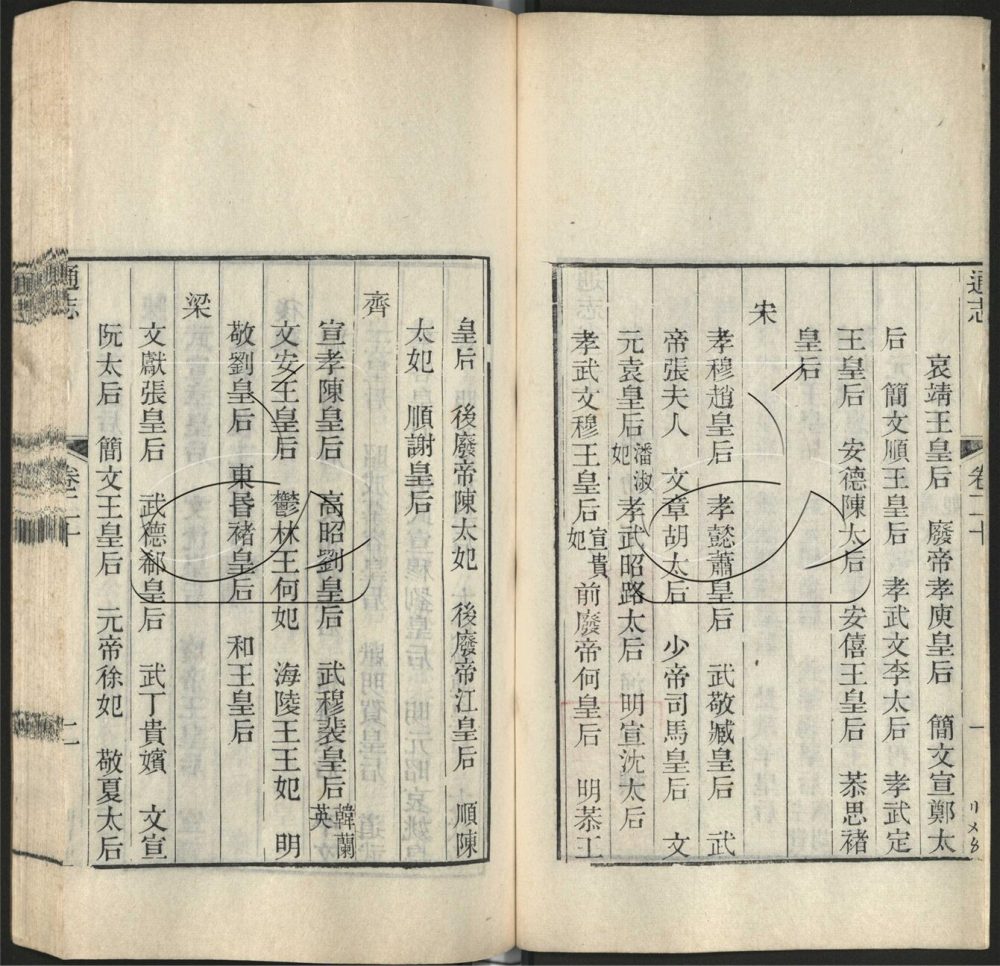 通志 卷二十 一
哀靖王皇后 廢帝孝庾皇后 簡文宣鄭太
后 簡文順王皇后 孝武文李太后 孝武定
王皇后 安德陳太后 安僖王皇后 恭思褚
皇后
宋
孝穆趙皇后 孝懿蕭皇后 武敬臧皇后 武
帝張夫人 文章胡太后 少帝司馬皇后 文
元袁皇后潘淑妃 孝武昭路太后 明宣沈太后
孝武文穆王皇后宣貴妃 前廢帝何皇后 明恭王
皇后 後廢帝陳太妃 後廢帝江皇后 順陳
太妃 順謝皇后
齊
宣孝陳皇后 高昭劉皇后 武穆裴皇后韓蘭英
文安王皇后 鬱林王何妃 海陵王王妃 明
敬劉皇后 東昏褚皇后 和王皇后
梁
文獻張皇后 武德郗皇后 武丁貴嬪 文宣
阮太后 簡文王皇后 元帝徐妃 敬夏太后
通志 卷二十